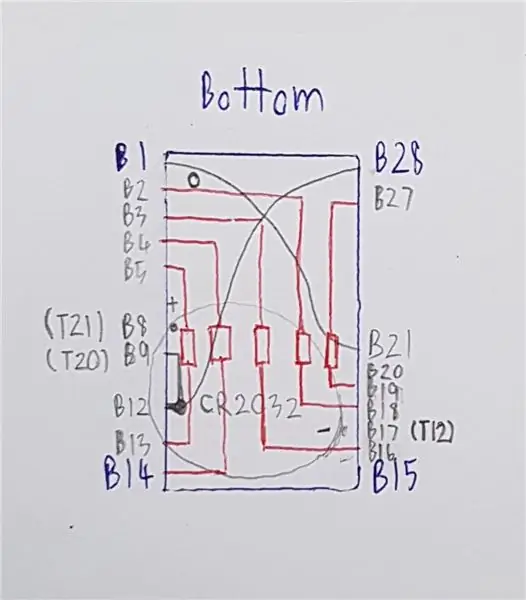 Bottom
B1
B28
B2
B27
B3
B4
B5
+
(T21) B8
(T20) B9
B21
B20
B19
B12
CR2032
B18
- B17 (T12)
B13
B16
B14
B15